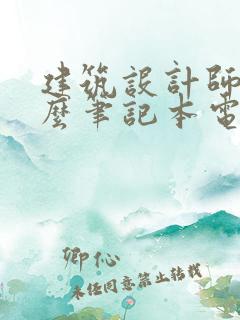 建筑設計師
麽筆記本電
卿伈
未经同意禁止转载